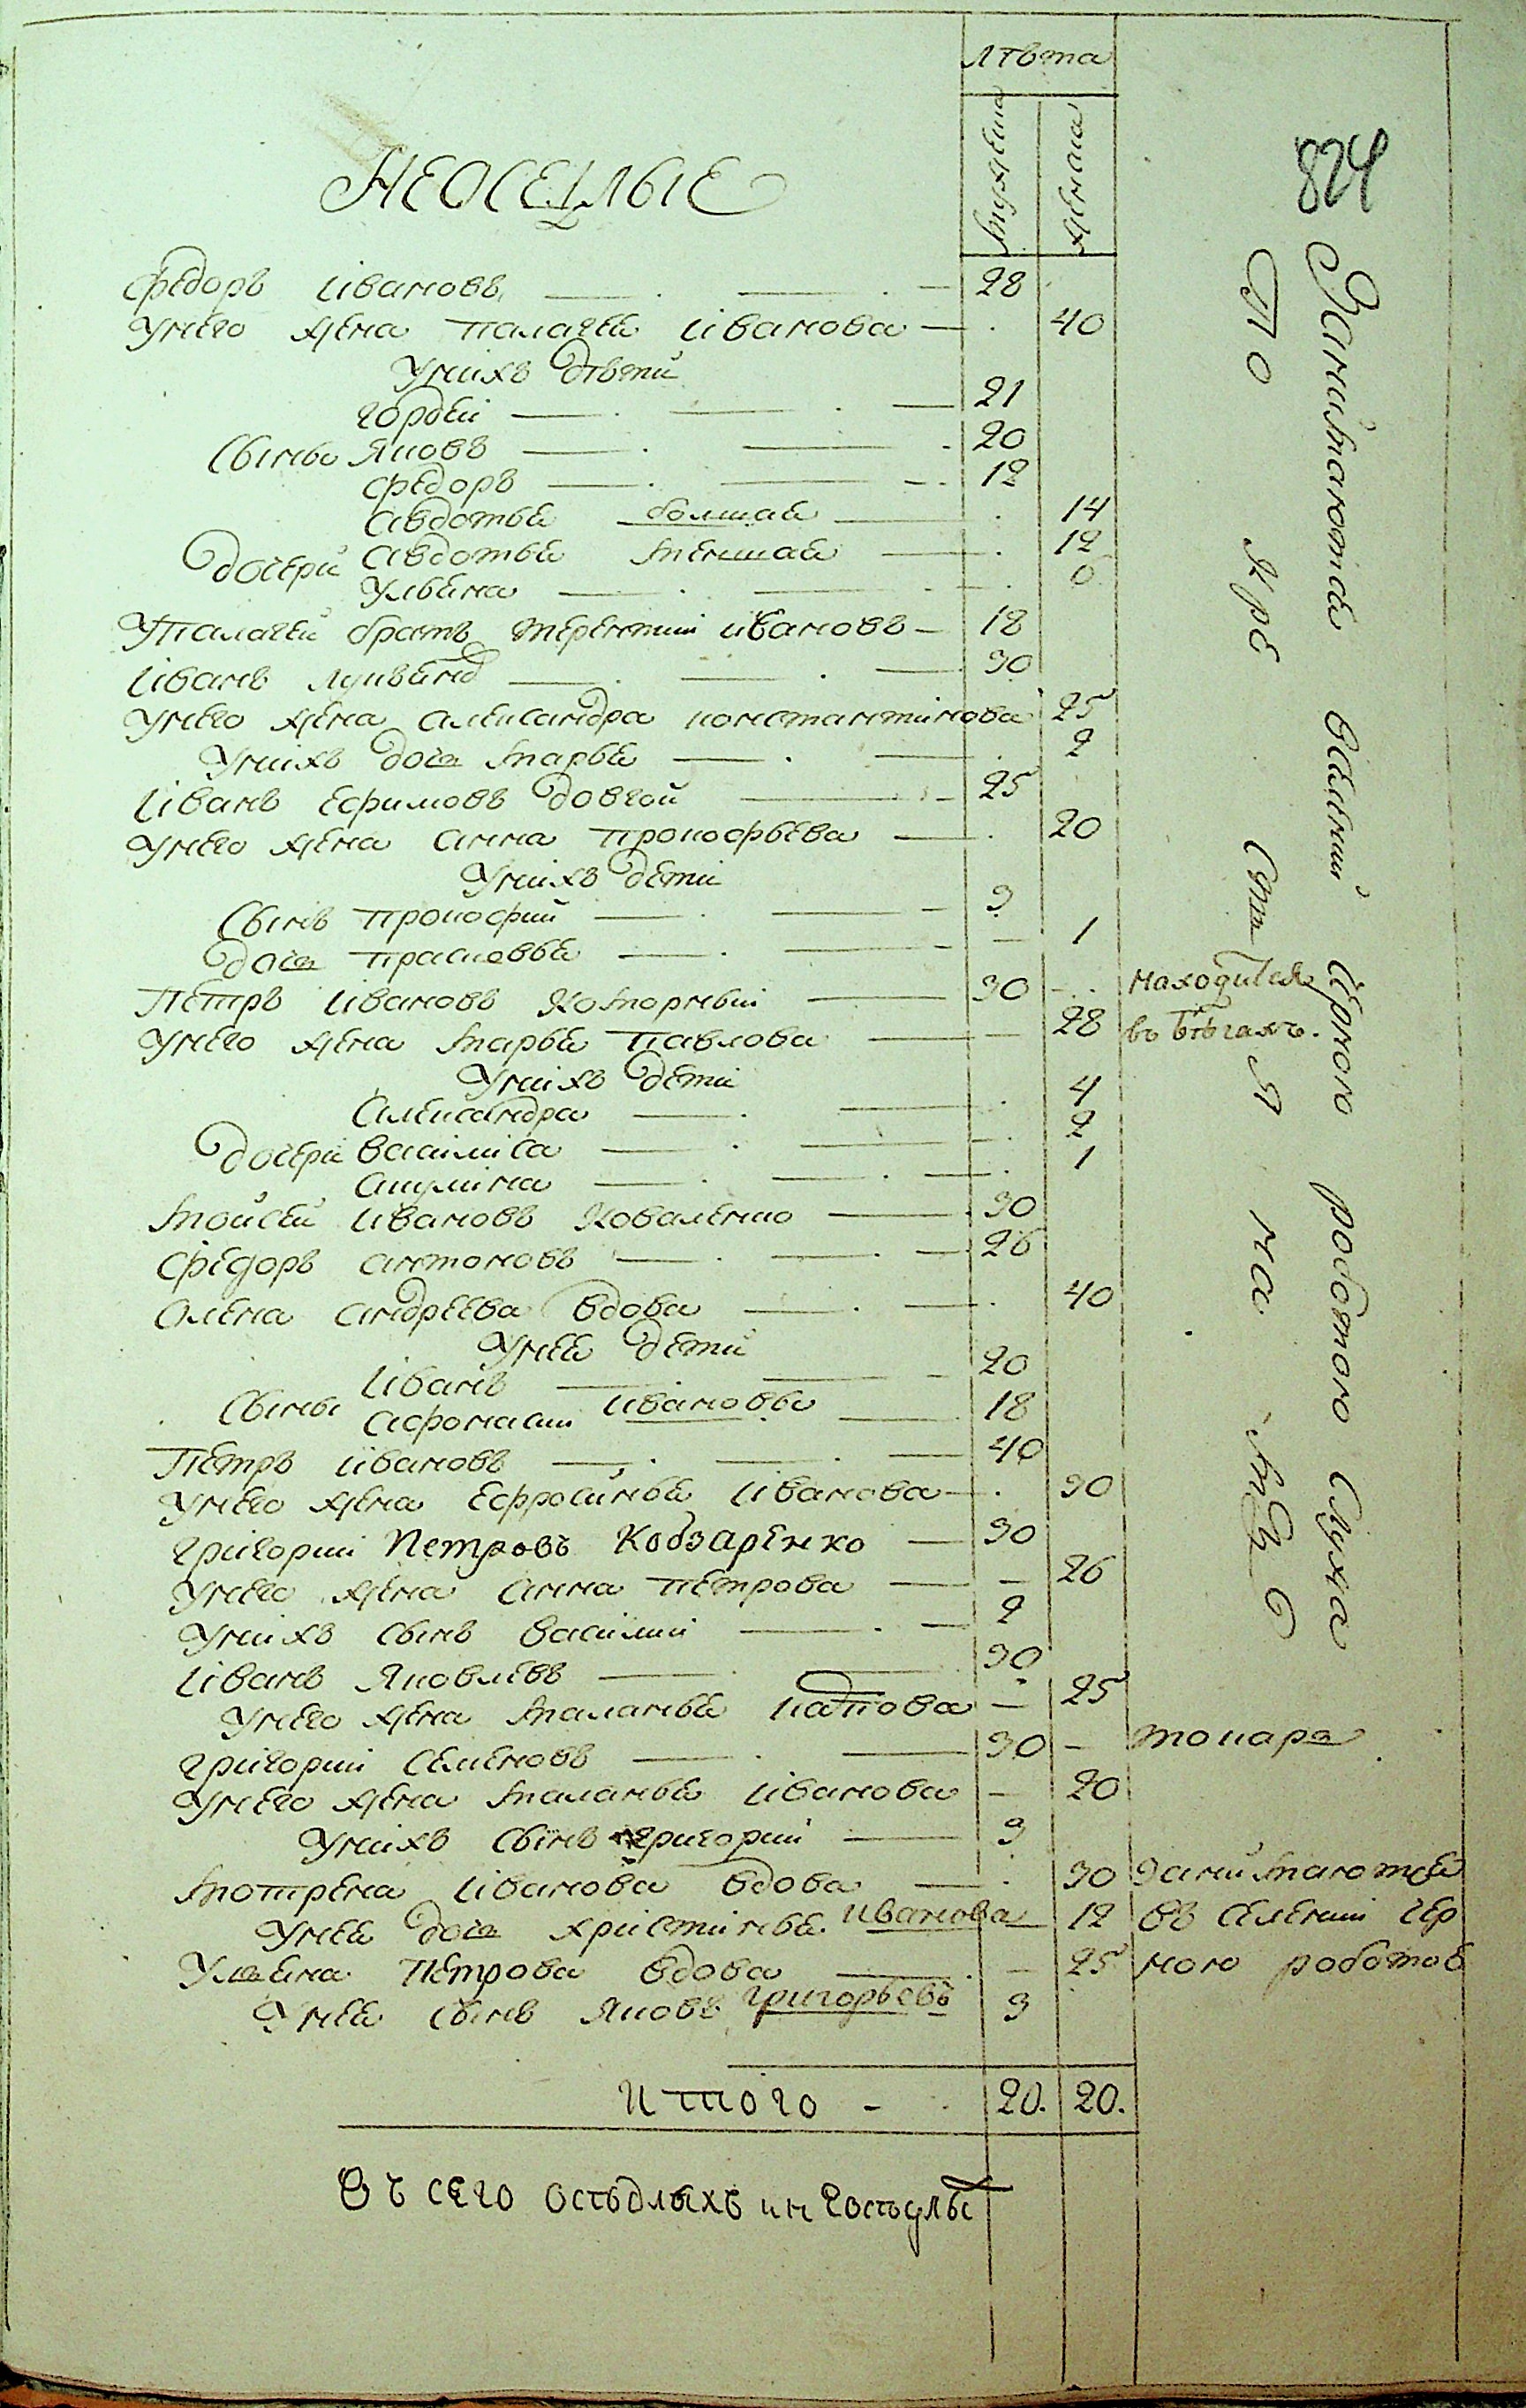 лѣта
мужеска
женска
824
НЕОСЕДЛЫЕ
федоръ Ивановъ 28
Унего жена палагея Иванова 40
Унихъ дѣти
гордей 21
Сыны Яковъ 20
федоръ 12
авдотья болшая 14
дочери авдотья меншая 12
Ульяна
Упалагеи братъ терентий ивановъ 18
Иванъ 30
Унего жена александра константинова 25
Унихъ дочь марья 2
Иванъ ефимовъ довгой 25
Унего жена анна прокофьева 20
Унихъ дети
Сынъ прокофий 3
дочь прасковья 1
Петръ Ивановъ Коморный 30 находится
Унего жена марья павлова 28 въ бѣгахъ.
Унихъ дети
Александра 4
дочери василиса 2
акулина 1
мойсей ивановъ Коваленко 30
федоръ антоновъ 26
олена андреева вдова 40
Унея дети
Иванъ 20
Сыны афонасий ивановы 18
Петръ ивановъ 40
Унего жена ефросинья Иванова 30
григорий Петровъ Кобзаренко 30
Унего жена анна петрова 26
Унихъ сынъ василий 2
Иванъ Яковлевъ 30
Унего жена маланья 25
григорий семеновъ 30 токарь
Унего жена маланья Иванова 20
Унихъ сынъ григорий 3
мотрена Иванова вдова 30 занимаютсѧ
Унея дочь христинья Иванова 12 въ селении чер
Ульяна Петрова вдова 25 ною роботою
Унея сынъ Яковъ григорьевъ 3
Итого 20. 20.
Въсего осѣдлыхъ и
Занимаютця всякий черною роботою слуха
По кре сть я на мъ